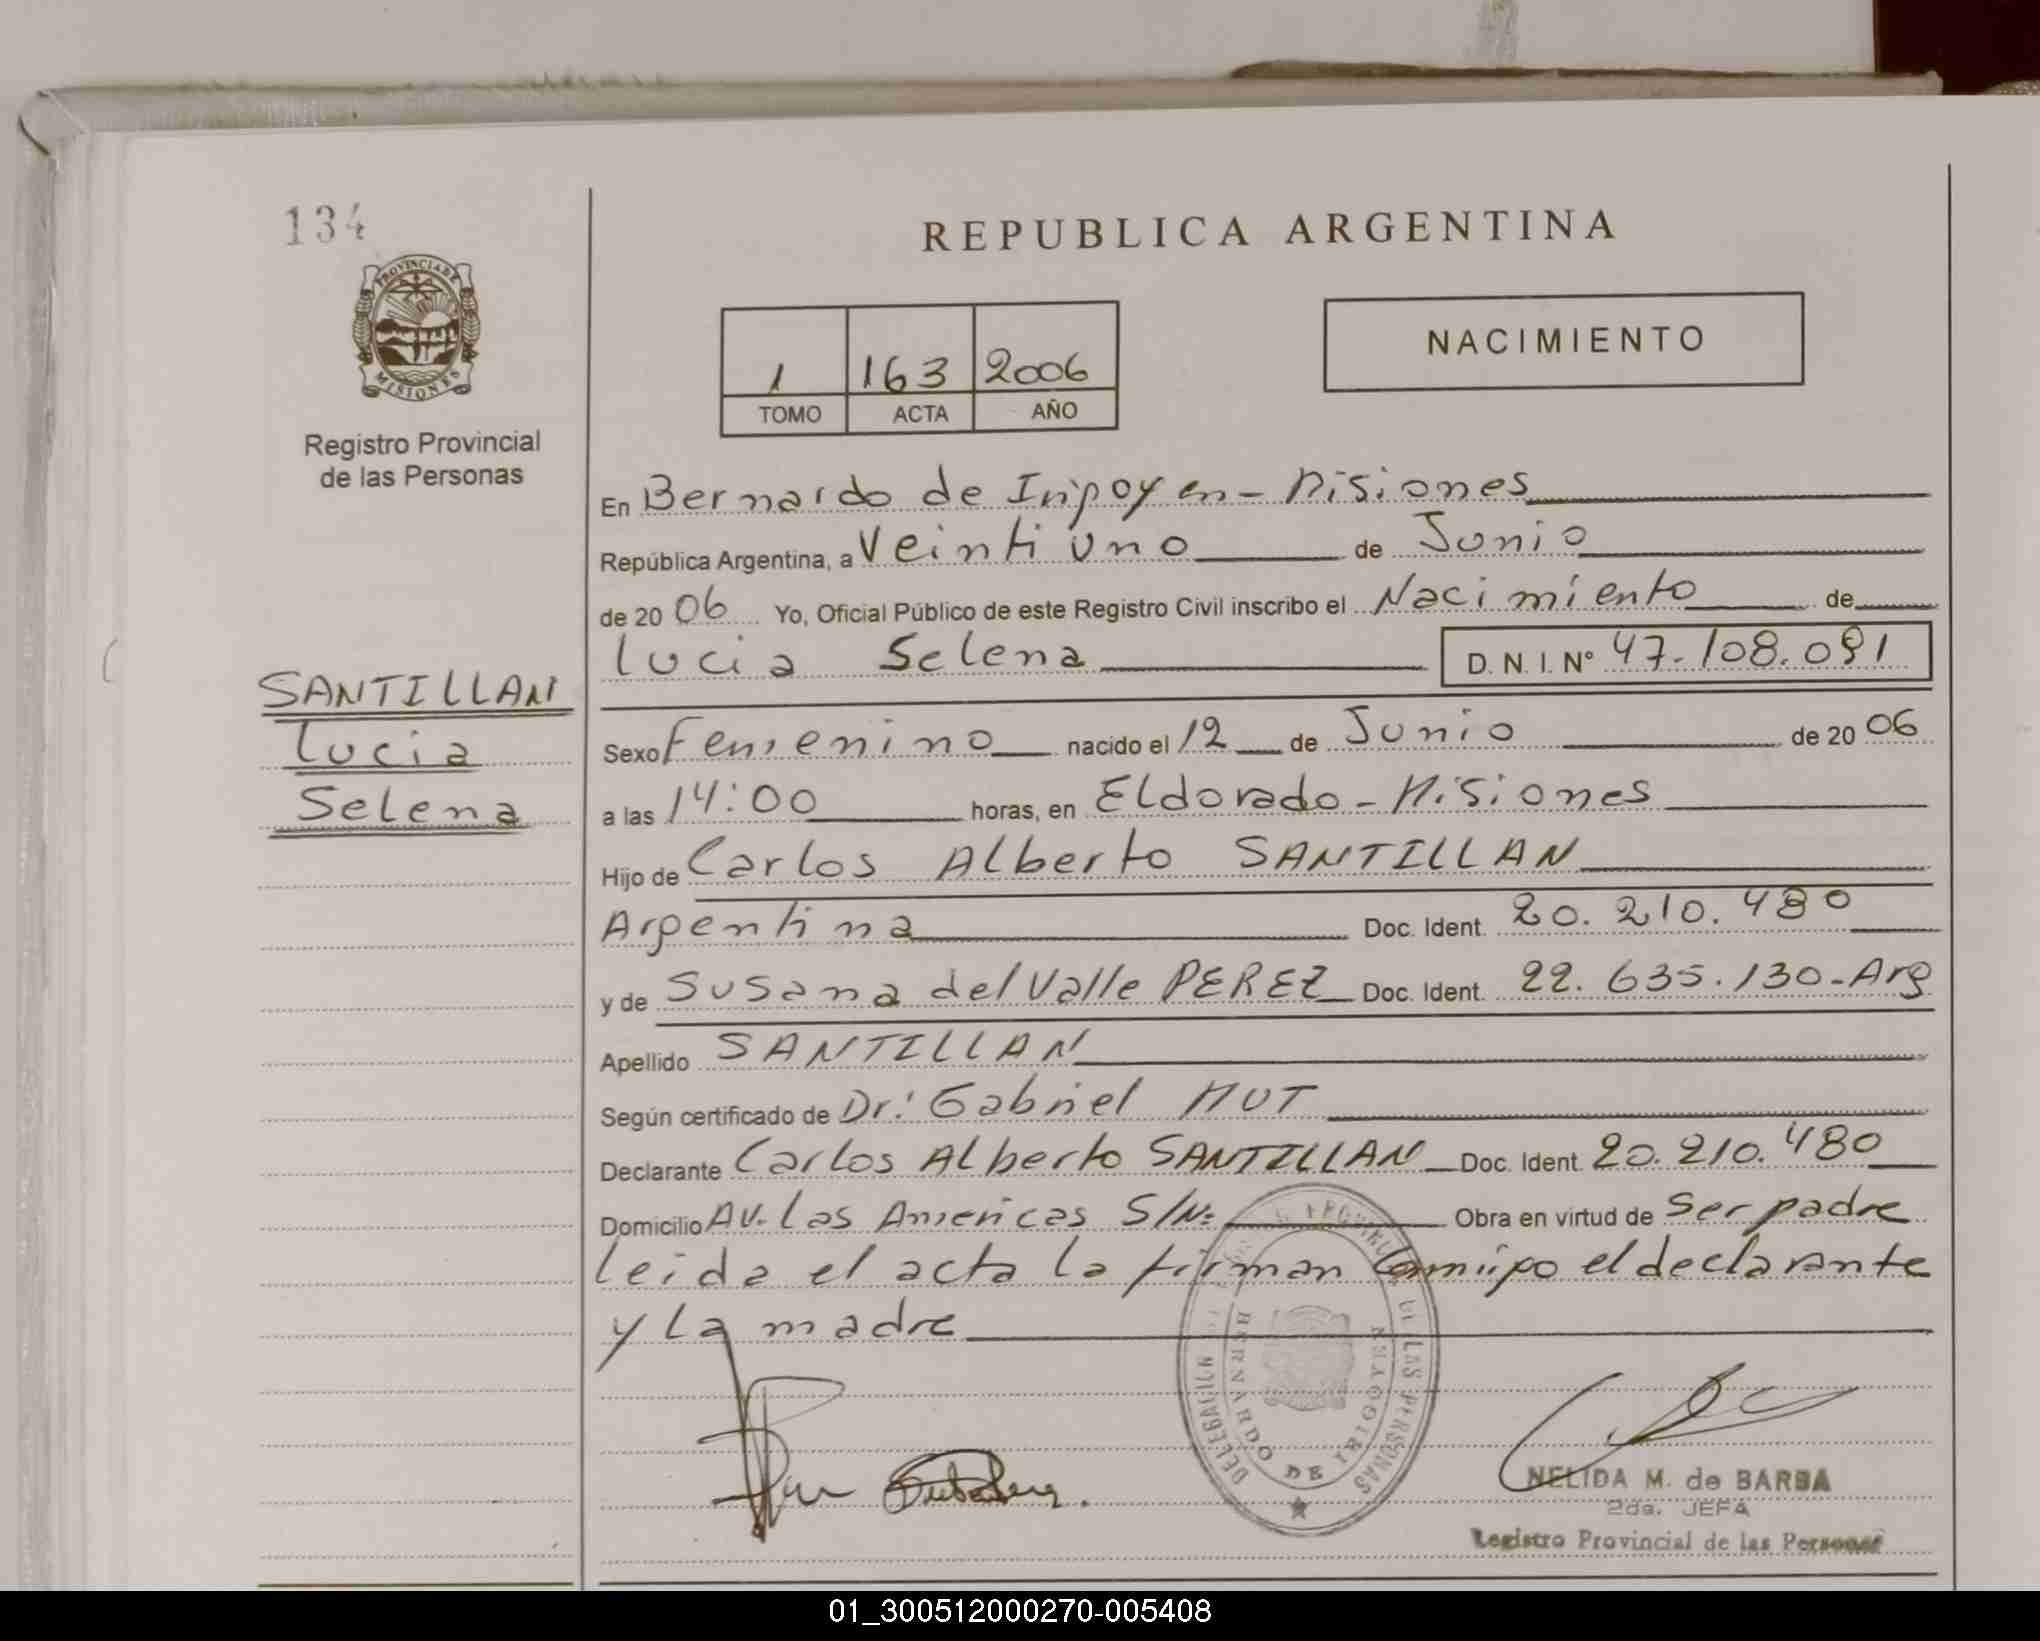 134
PROVINCIA DE
MISIONES
Registro Provincial
de las Personas
SANTILLAN
Lucia
Selena
REPUBLICA ARGENTINA
1 163 2006
TOMO ACTA AÑO
NACIMIENTO
En Bernardo de Irigoyen - Misiones
República Argentina, a Veintiuno de Junio
de 20 06 Yo, Oficial Público de este Registro Civil inscribo el Nacimiento de
Lucia Selena D. N. I. Nº 47.108.091
Sexo Femenino nacido el 12 de Junio de 20 06
a las 14:00 horas, en Eldorado - Misiones
Hijo de Carlos Alberto SANTILLAN
Argentina Doc. Ident. 20.210.480
y de Susana del Valle PEREZ Doc. Ident. 22.635.130-Arg
Apellido SANTILLAN
Según certificado de Dr: Gabriel MUT
Declarante Carlos Alberto SANTILLAN Doc. Ident. 20.210.480
Domicilio AV. Las Americas S/Nº Obra en virtud de Ser padre
leida el acta la firman conmigo el declarante
y la madre
DELEGACION DE LAS PERSONAS
BERNARDO DE IRIGOYEN
NELIDA M. de BARBA
2da. JEFA
Registro Provincial de las Personas
01_300512000270-005408